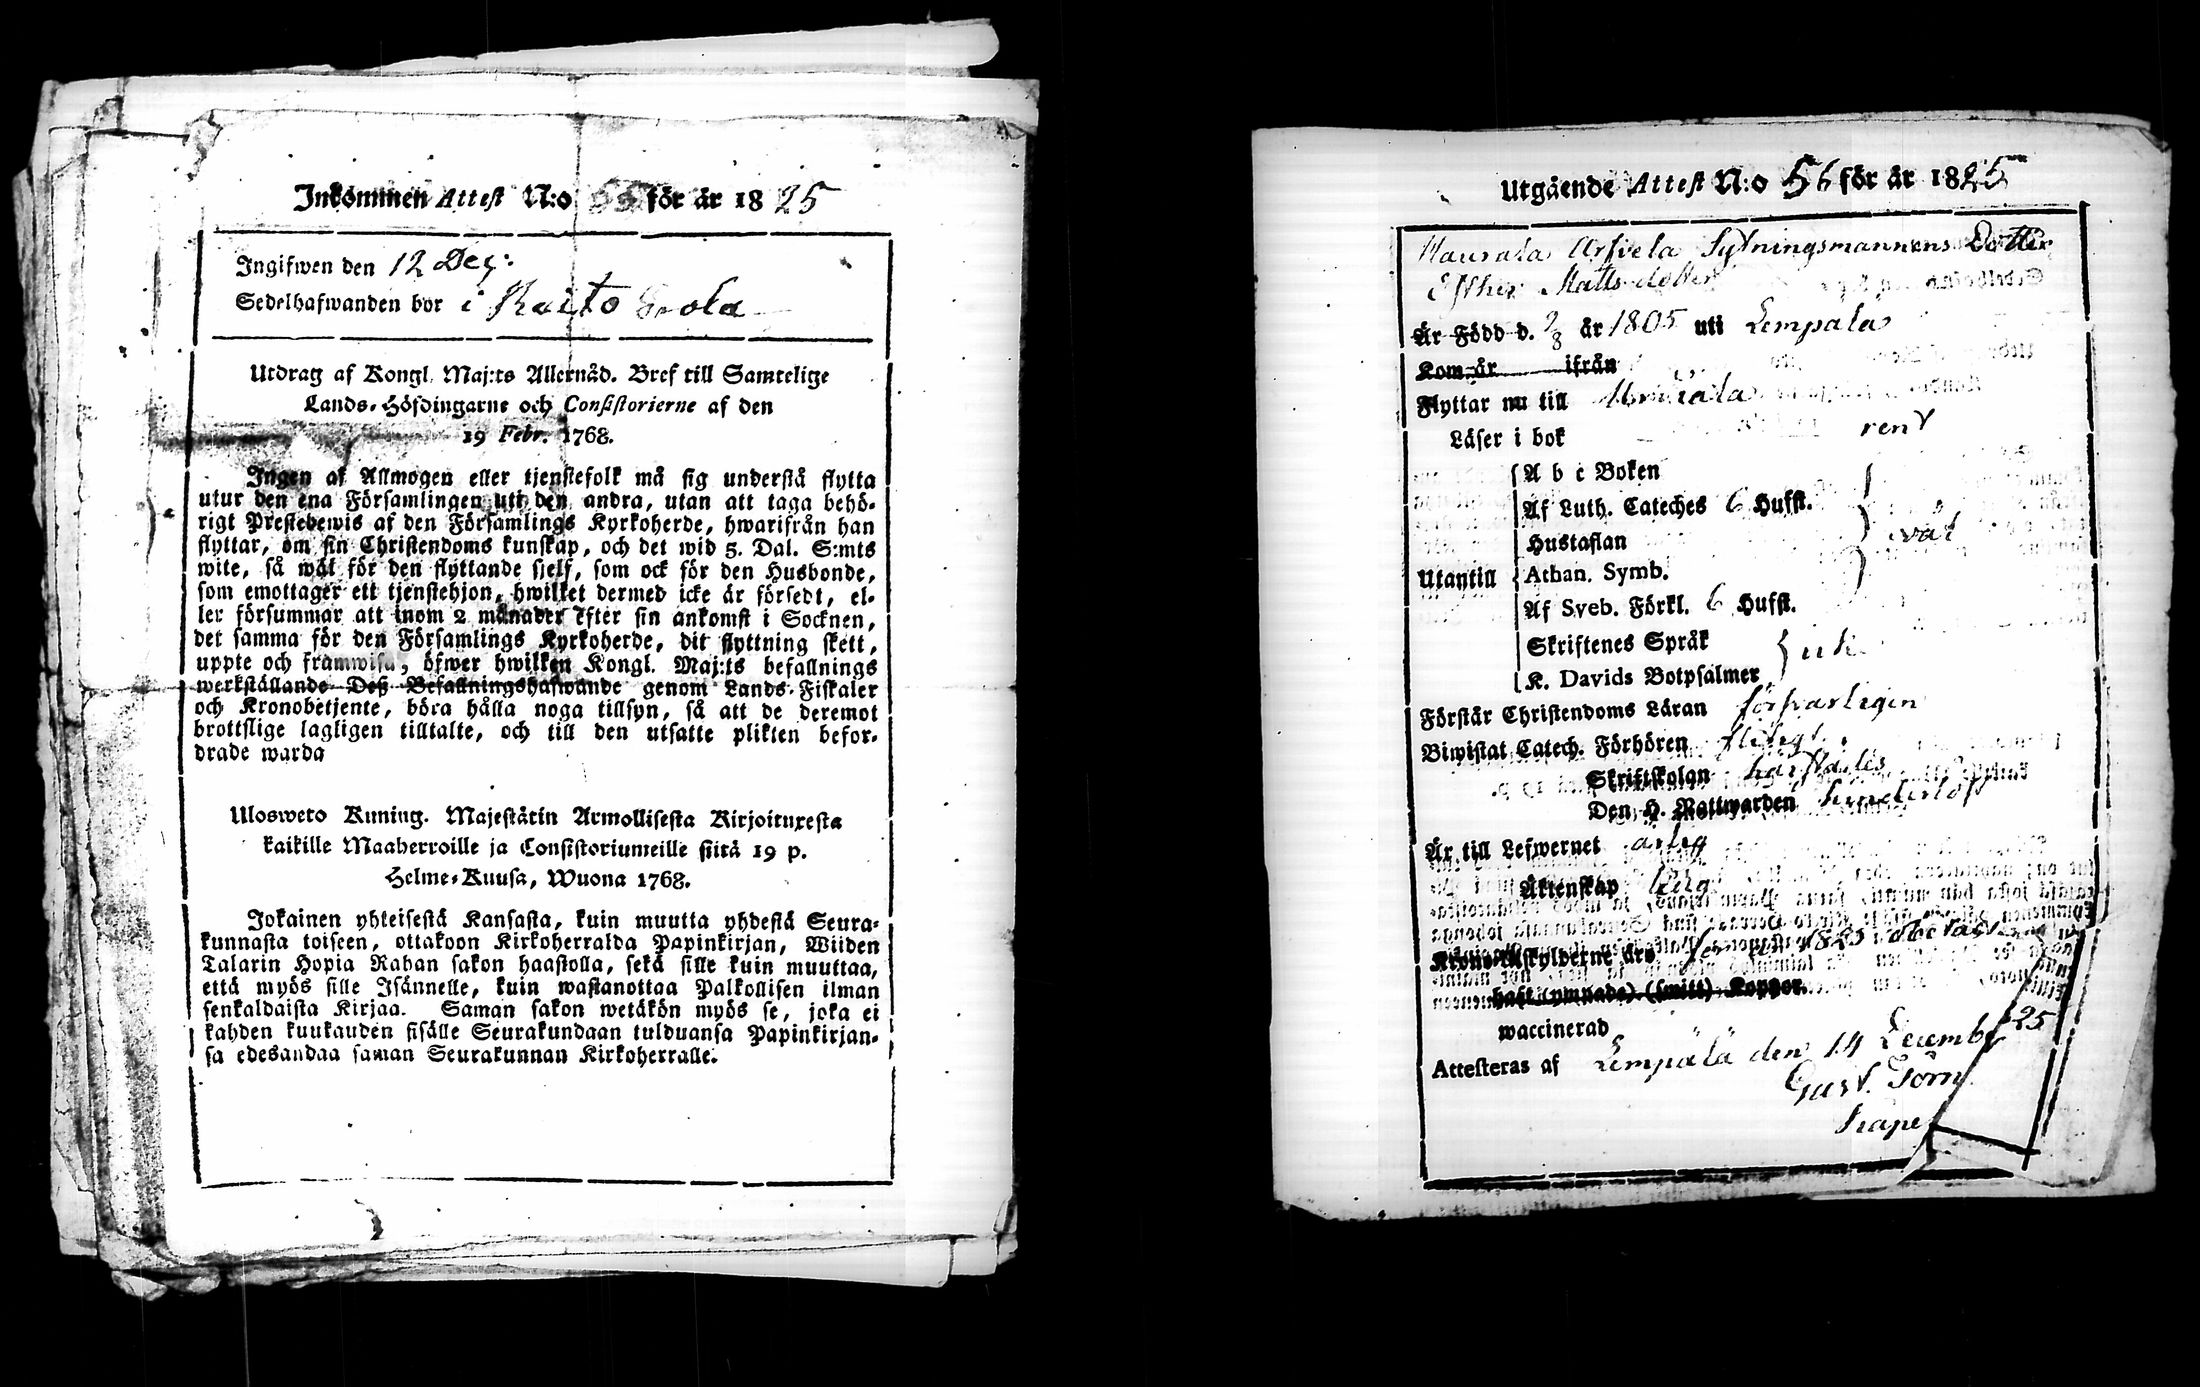 Inkommen Attest N:o 55 för år 1825
Ingifwen den 12 Dec:
Sedelhafwanden bor i
Utdrag af Kongl. Maj:ts Allernåd. Bref till Samtelige
Lands-Höfdingarne och Consistorierne af den
19 Febr. 1768.
Ingen af Allmogen eller tjenstefolk må sig understå flytta
utur den ena Församlingen uti den andra, utan att taga behö-
rigt Prestebewis af den Församlings Kyrkoherde, hwarifrån han
flyttar, om sin Christendoms kunskap, och det wid 5. Dal. S:mts
wite, så wäl för den flyttande sjelf, som ock för den Husbonde,
som emottager ett tjenstehjon, hwilket dermed icke är försedt, el-
ler försummar att inom 2 månader efter sin ankomst i Socknen,
det samma för den Församlings Kyrkoherde, dit flyttning skett,
uppte och framwisa, öfwer hwilken Kongl. Maj:ts befallnings
werkställande Deß Befallningshafwande genom Lands-Fiskaler
och Kronobetjente, böra hålla noga tillsyn, så att de deremot
brottslige lagligen tilltalte, och till den utsatte plikten befor-
drade warda
Ulosweto Kuning. Majestätin Armollisesta Kirjoituxesta
kaikille Maaherroille ja Consistoriumeille siitä 19 p.
Helme-Kuusa, Wuona 1768.
Jokainen yhteisestä Kansasta, kuin muutta yhdestä Seura-
kunnasta toiseen, ottakoon Kirkoherralda Papinkirjan, Wiiden
Talarin Hopia Rahan sakon haastolla, sekä sille kuin muuttaa,
että myös sille Isännelle, kuin wastanottaa Palkollisen ilman
senkaldaista Kirjaa. Saman sakon wetäkön myös se, joka ei
kahden kuukauden sisälle Seurakundaan tulduansa Papinkirjan-
sa edesandaa saman Seurakunnan Kirkoherralle.
Utgående Attest N:o 56 för år 1825
Sytningsmannens Dotter
Esther Mattsdotter
Är Född d. 2/8 år 1805 uti Lempala
Kom år ifrån
Flyttar nu till
Läser i bok rent
A b c Boken
Af Luth. Cateches 6 Hufst.
Hustaflan
Utantill Athan. Symb.
Af Sveb. Förkl. 6 Hufst.
Skriftenes Språk
K. Davids Botpsalmer
Förstår Christendoms Läran försvarligen
Biwistat Catech. Förhören flitigt
Skriftskolan
Den H. Nattwarden
Är till Lefwernet ärlig
Äktenskap ledig
Krono Utskylderne års 1825
haft (ympade) (smitt) Koppor.
waccinerad
Attesteras af Lempälä den 14 Decemb 1825
Gust. Törn